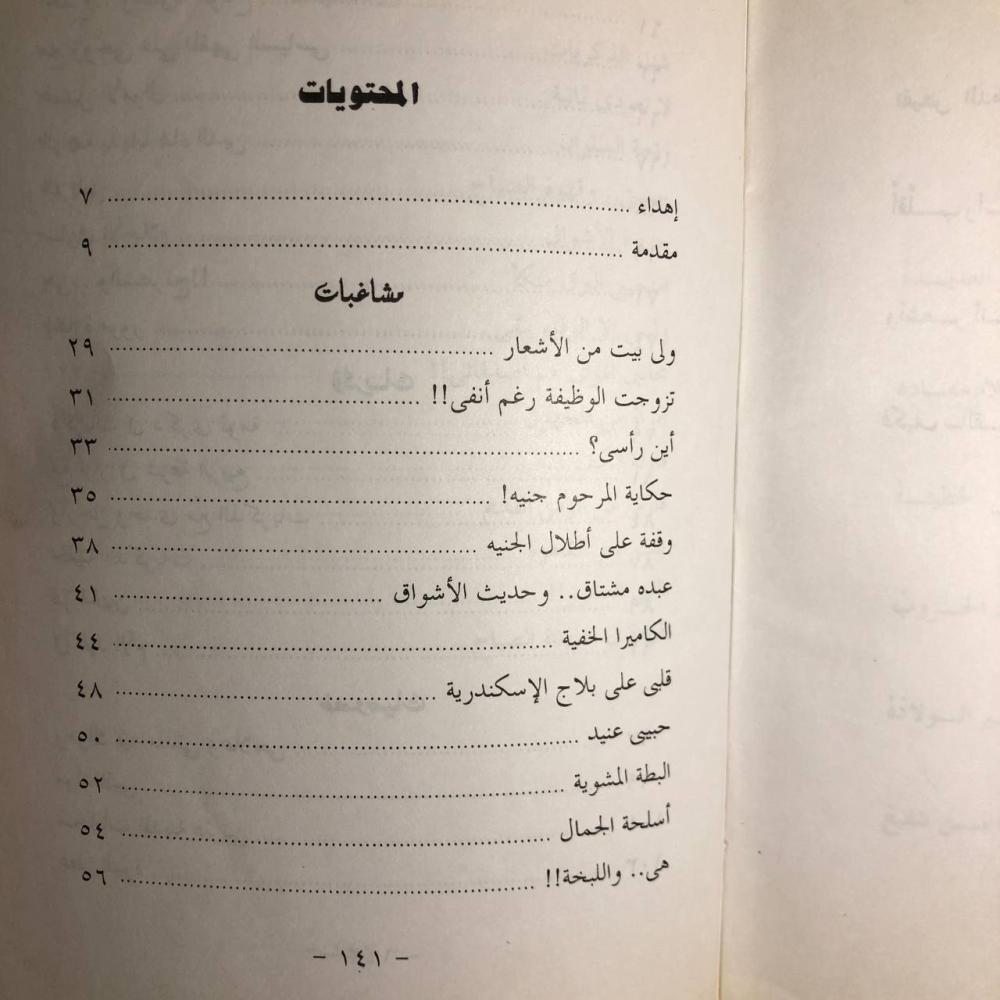 المحتويات
إهداء ........................ ٧
مقدمة ........................ ٩
مشاغبات
ولى بيت من الأشعار ........................ ٢٩
تزوجت الوظيفة رغم أنفى!! ........................ ٣١
أين رأسى؟ ........................ ٣٣
حكاية المرحوم جنيه! ........................ ٣٥
وقفة على أطلال الجنيه ........................ ٣٨
عبده مشتاق.. وحديث الأشواق ........................ ٤١
الكاميرا الخفية ........................ ٤٤
قلبى على بلاج الإسكندرية ........................ ٤٨
حبيبى عنيد ........................ ٥٠
البطة المشوية ........................ ٥٢
أسلحة الجمال ........................ ٥٤
هى.. واللبخة!! ........................ ٥٦
- ١٤١ -